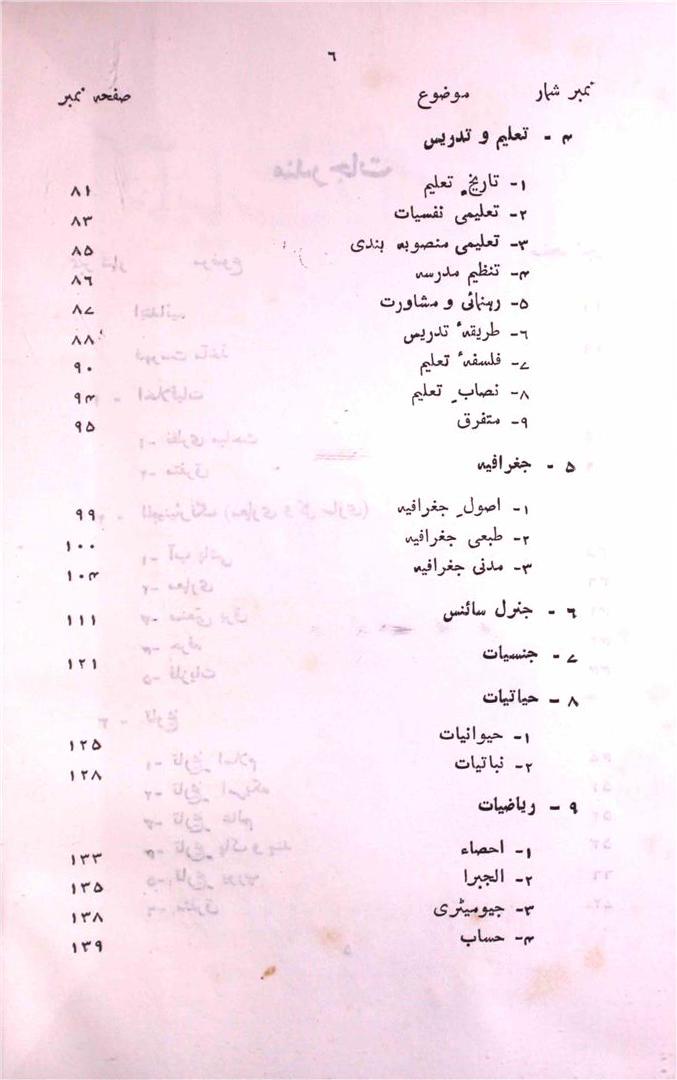 ٦
نمبر شمار موضوع صفحہ نمبر
۴ - تعلیم و تدریس
۱- تاریخِ تعلیم ۸۱
۲- تعلیمی نفسیات ۸۳
۳- تعلیمی منصوبہ بندی ۸۵
۴- تنظیم مدرسہ ۸۶
۵- رہنمائی و مشاورت ۸۷
۶- طریقۂ تدریس ۸۸
۷- فلسفۂ تعلیم ۹۰
۸- نصابِ تعلیم ۹۴
۹- متفرق ۹۵
۵ - جغرافیہ
۱- اصولِ جغرافیہ ۹۹
۲- طبعی جغرافیہ ۱۰۰
۳- مدنی جغرافیہ ۱۰۴
۶ - جنرل سائنس ۱۱۱
۷ - جنسیات ۱۲۱
۸ - حیاتیات
۱- حیوانیات ۱۲۵
۲- نباتیات ۱۲۸
۹ - ریاضیات
۱- احصاء ۱۳۳
۲- الجبرا ۱۳۵
۳- جیومیٹری ۱۳۸
۴- حساب ۱۳۹